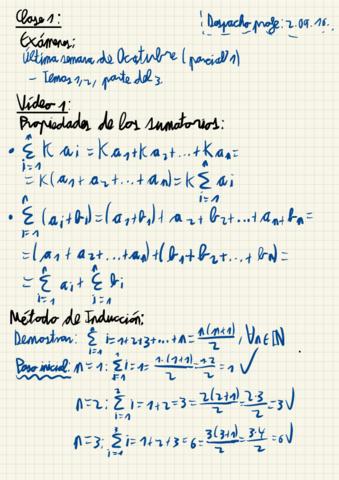 Clase 1:
Despacho profe: 2.09.16.
Exámenes:
Última semana de Ocutubre (parcial 1)
- Temas 1, 2, parte del 3.
Video 1:
Propiedades de los sumatorios:
• ∑_{i=1}^{n} K ai = Ka1 + Ka2 + ... + Kan =
= K(a1 + a2 + ... + an) = K ∑_{i=1}^{n} ai
• ∑_{i=1}^{n} (ai + bi) = (a1 + b1) + a2 + b2 + ... + an + bn =
= (a1 + a2 + ... + an) + (b1 + b2 + ... + bn) =
= ∑_{i=1}^{n} ai + ∑_{i=1}^{n} bi
Método de Inducción:
Demostrar: ∑_{i=1}^{n} i = 1+2+3+...+n = n(n+1)/2, ∀n∈ℕ
Paso inicial: n=1: ∑_{i=1}^{1} i = 1 = 1·(1+1)/2 = 1·2/2 = 1 ✓
n=2: ∑_{i=1}^{2} i = 1+2 = 3 = 2(2+1)/2 = 2·3/2 = 3 ✓
n=3: ∑_{i=1}^{3} i = 1+2+3 = 6 = 3(3+1)/2 = 3·4/2 = 6 ✓